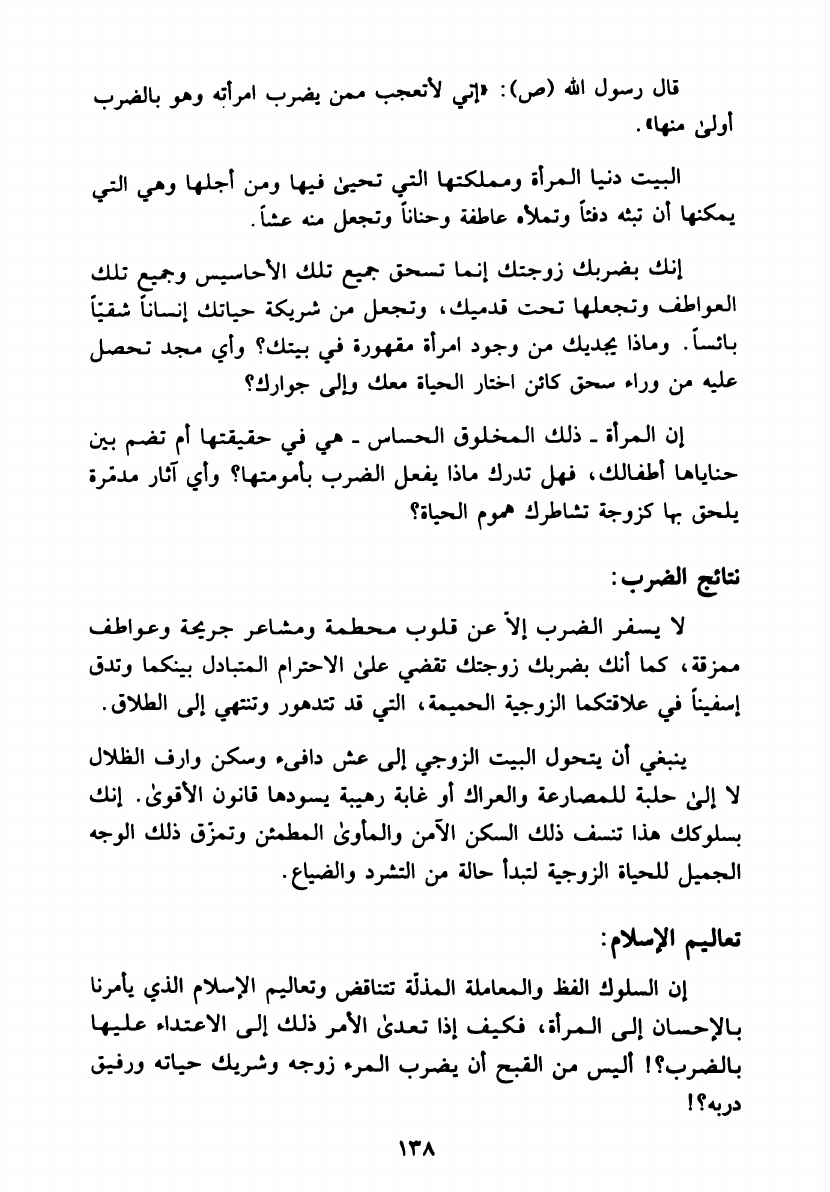 قال رسول الله (ص): «إني لأتعجب ممن يضرب امرأته وهو بالضرب
أولىٰ منها».
البيت دنيا المرأة ومملكتها التي تحيىٰ فيها ومن أجلها وهي التي
يمكنها أن تبثه دفئاً وتملأه عاطفة وحناناً وتجعل منه عشاً.
إنك بضربك زوجتك إنما تسحق جميع تلك الأحاسيس وجميع تلك
العواطف وتجعلها تحت قدميك، وتجعل من شريكة حياتك إنساناً شقيّاً
بائساً. وماذا يجديك من وجود امرأة مقهورة في بيتك؟ وأي مجد تحصل
عليه من وراء سحق كائن اختار الحياة معك وإلى جوارك؟
إن المرأة - ذلك المخلوق الحساس - هي في حقيقتها أم تضم بين
حناياها أطفالك، فهل تدرك ماذا يفعل الضرب بأمومتها؟ وأي آثار مدمّرة
يلحق بها كزوجة تشاطرك هموم الحياة؟
نتائج الضرب:
لا يسفر الضرب إلاّ عن قلوب محطمة ومشاعر جريحة وعواطف
ممزقة، كما أنك بضربك زوجتك تقضي علىٰ الاحترام المتبادل بينكما وتدق
إسفيناً في علاقتكما الزوجية الحميمة، التي قد تتدهور وتنتهي إلى الطلاق.
ينبغي أن يتحول البيت الزوجي إلى عش دافىء وسكن وارف الظلال
لا إلىٰ حلبة للمصارعة والعراك أو غابة رهيبة يسودها قانون الأقوىٰ. إنك
بسلوكك هذا تنسف ذلك السكن الآمن والمأوىٰ المطمئن وتمزّق ذلك الوجه
الجميل للحياة الزوجية لتبدأ حالة من التشرد والضياع.
تعاليم الإسلام:
إن السلوك الفظ والمعاملة المذلّة تتناقض وتعاليم الإسلام الذي يأمرنا
بالإحسان إلى المرأة، فكيف إذا تعدىٰ الأمر ذلك إلى الاعتداء عليها
بالضرب؟! أليس من القبح أن يضرب المرء زوجه وشريك حياته ورفيق
دربه؟!
١٣٨